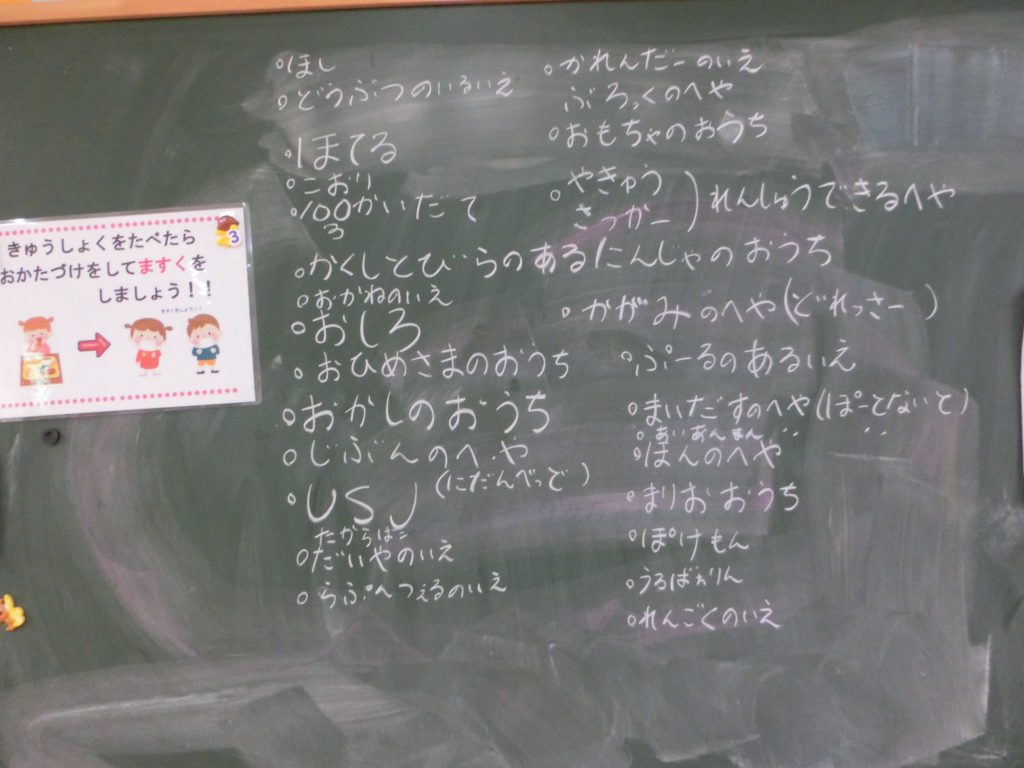 きゅうしょくをたべたら
おかたづけをしてますくを
しましょう!!
3
○ほし
○どうぶつのいるいえ
○ほてる
○こおり
○100かいだて
3
○かくしとびらのあるにんじゃのおうち
○おかねのいえ
○おしろ
○おひめさまのおうち
○おかしのおうち
○じぶんのへや
(にだんべっど)
○USJ
たからばこ
○だいやのいえ
○らぷんつぇるのいえ
○かれんだーのいえ
ぶろっくのへや
○おもちゃのおうち
○やきゅう
さっかー
)れんしゅうできるへや
○かがみのへや(どれっさー)
○ぷーるのあるいえ
○まいだすのへや(ぽーとないと)
○あいあんまん
○ほんのへや
○まりおおうち
○ぽけもん
○うるばぁりん
○れんごくのいえ